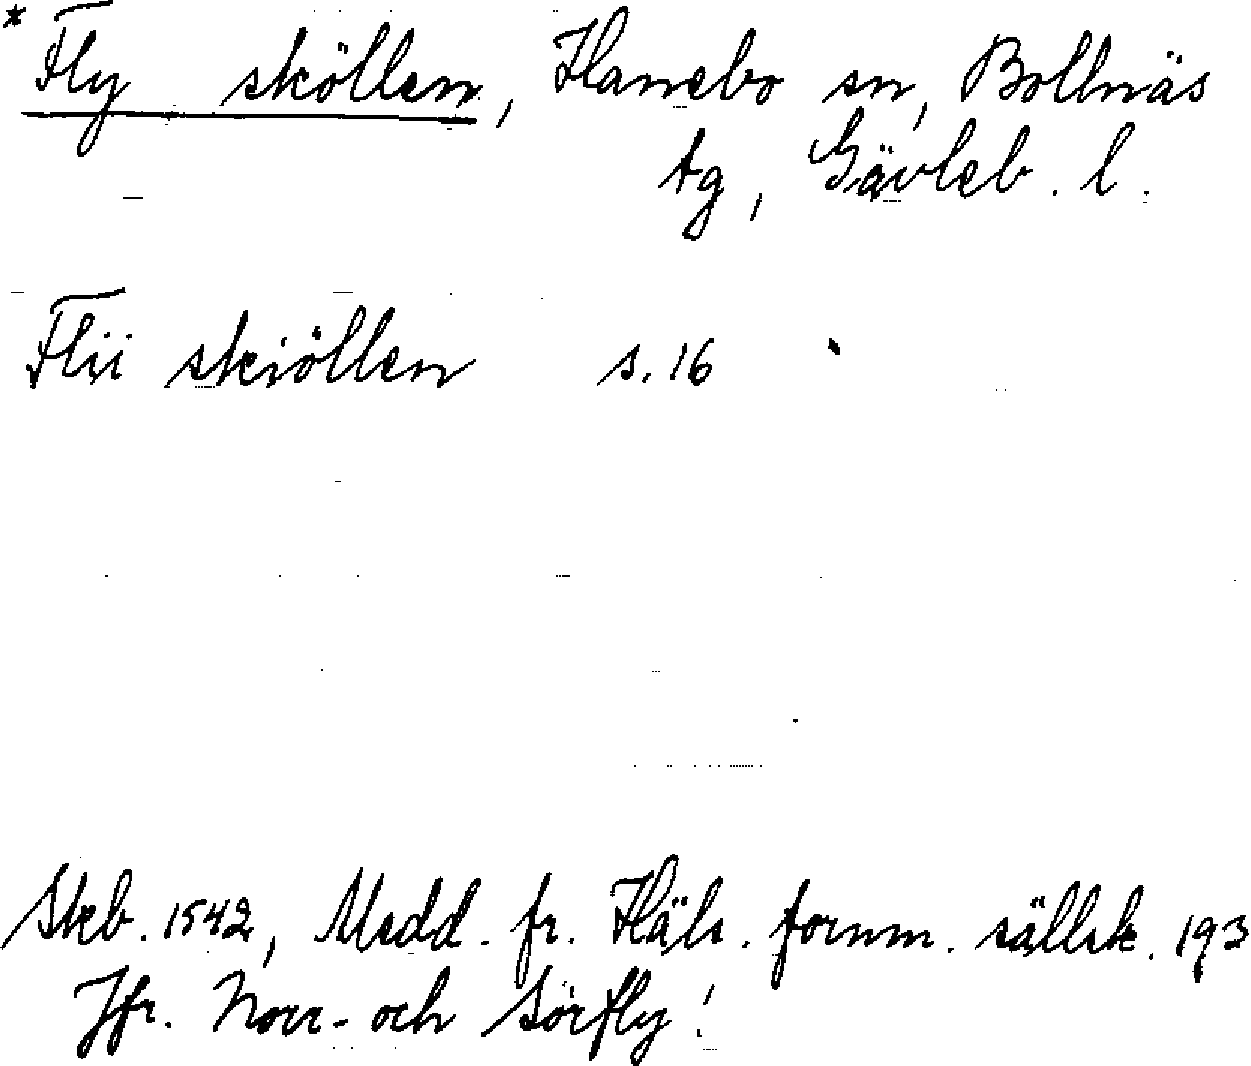 * Fly sköllen, Hanebo sn, Bollnäs
tg, Gävleb. l.
Flii skiöllen s. 16
Skb. 1542, Medd. fr. Häls. fornm. sällsk. 193
Jfr. Norr- och Sörfly!